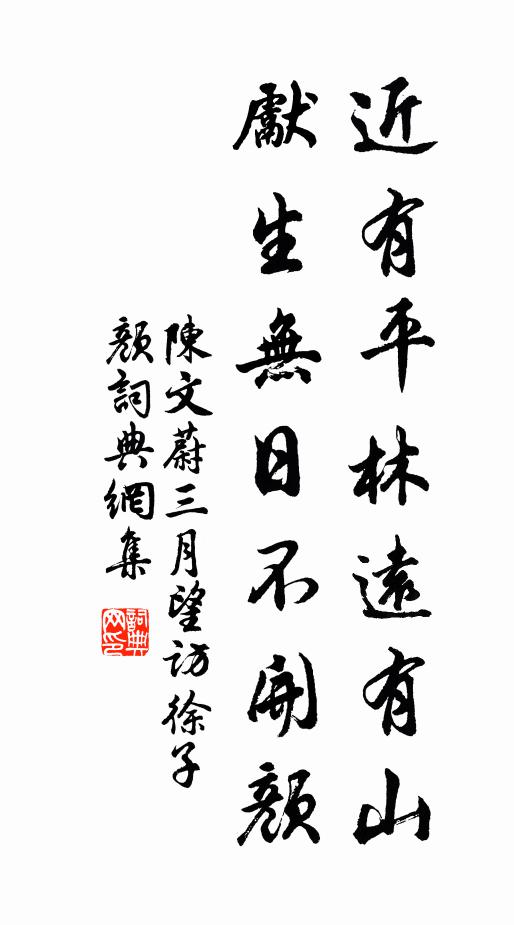 近有平林遠有山
獻生無日不開顏
陳文蔚三月望訪徐子
顏詞典網集
詞典網印